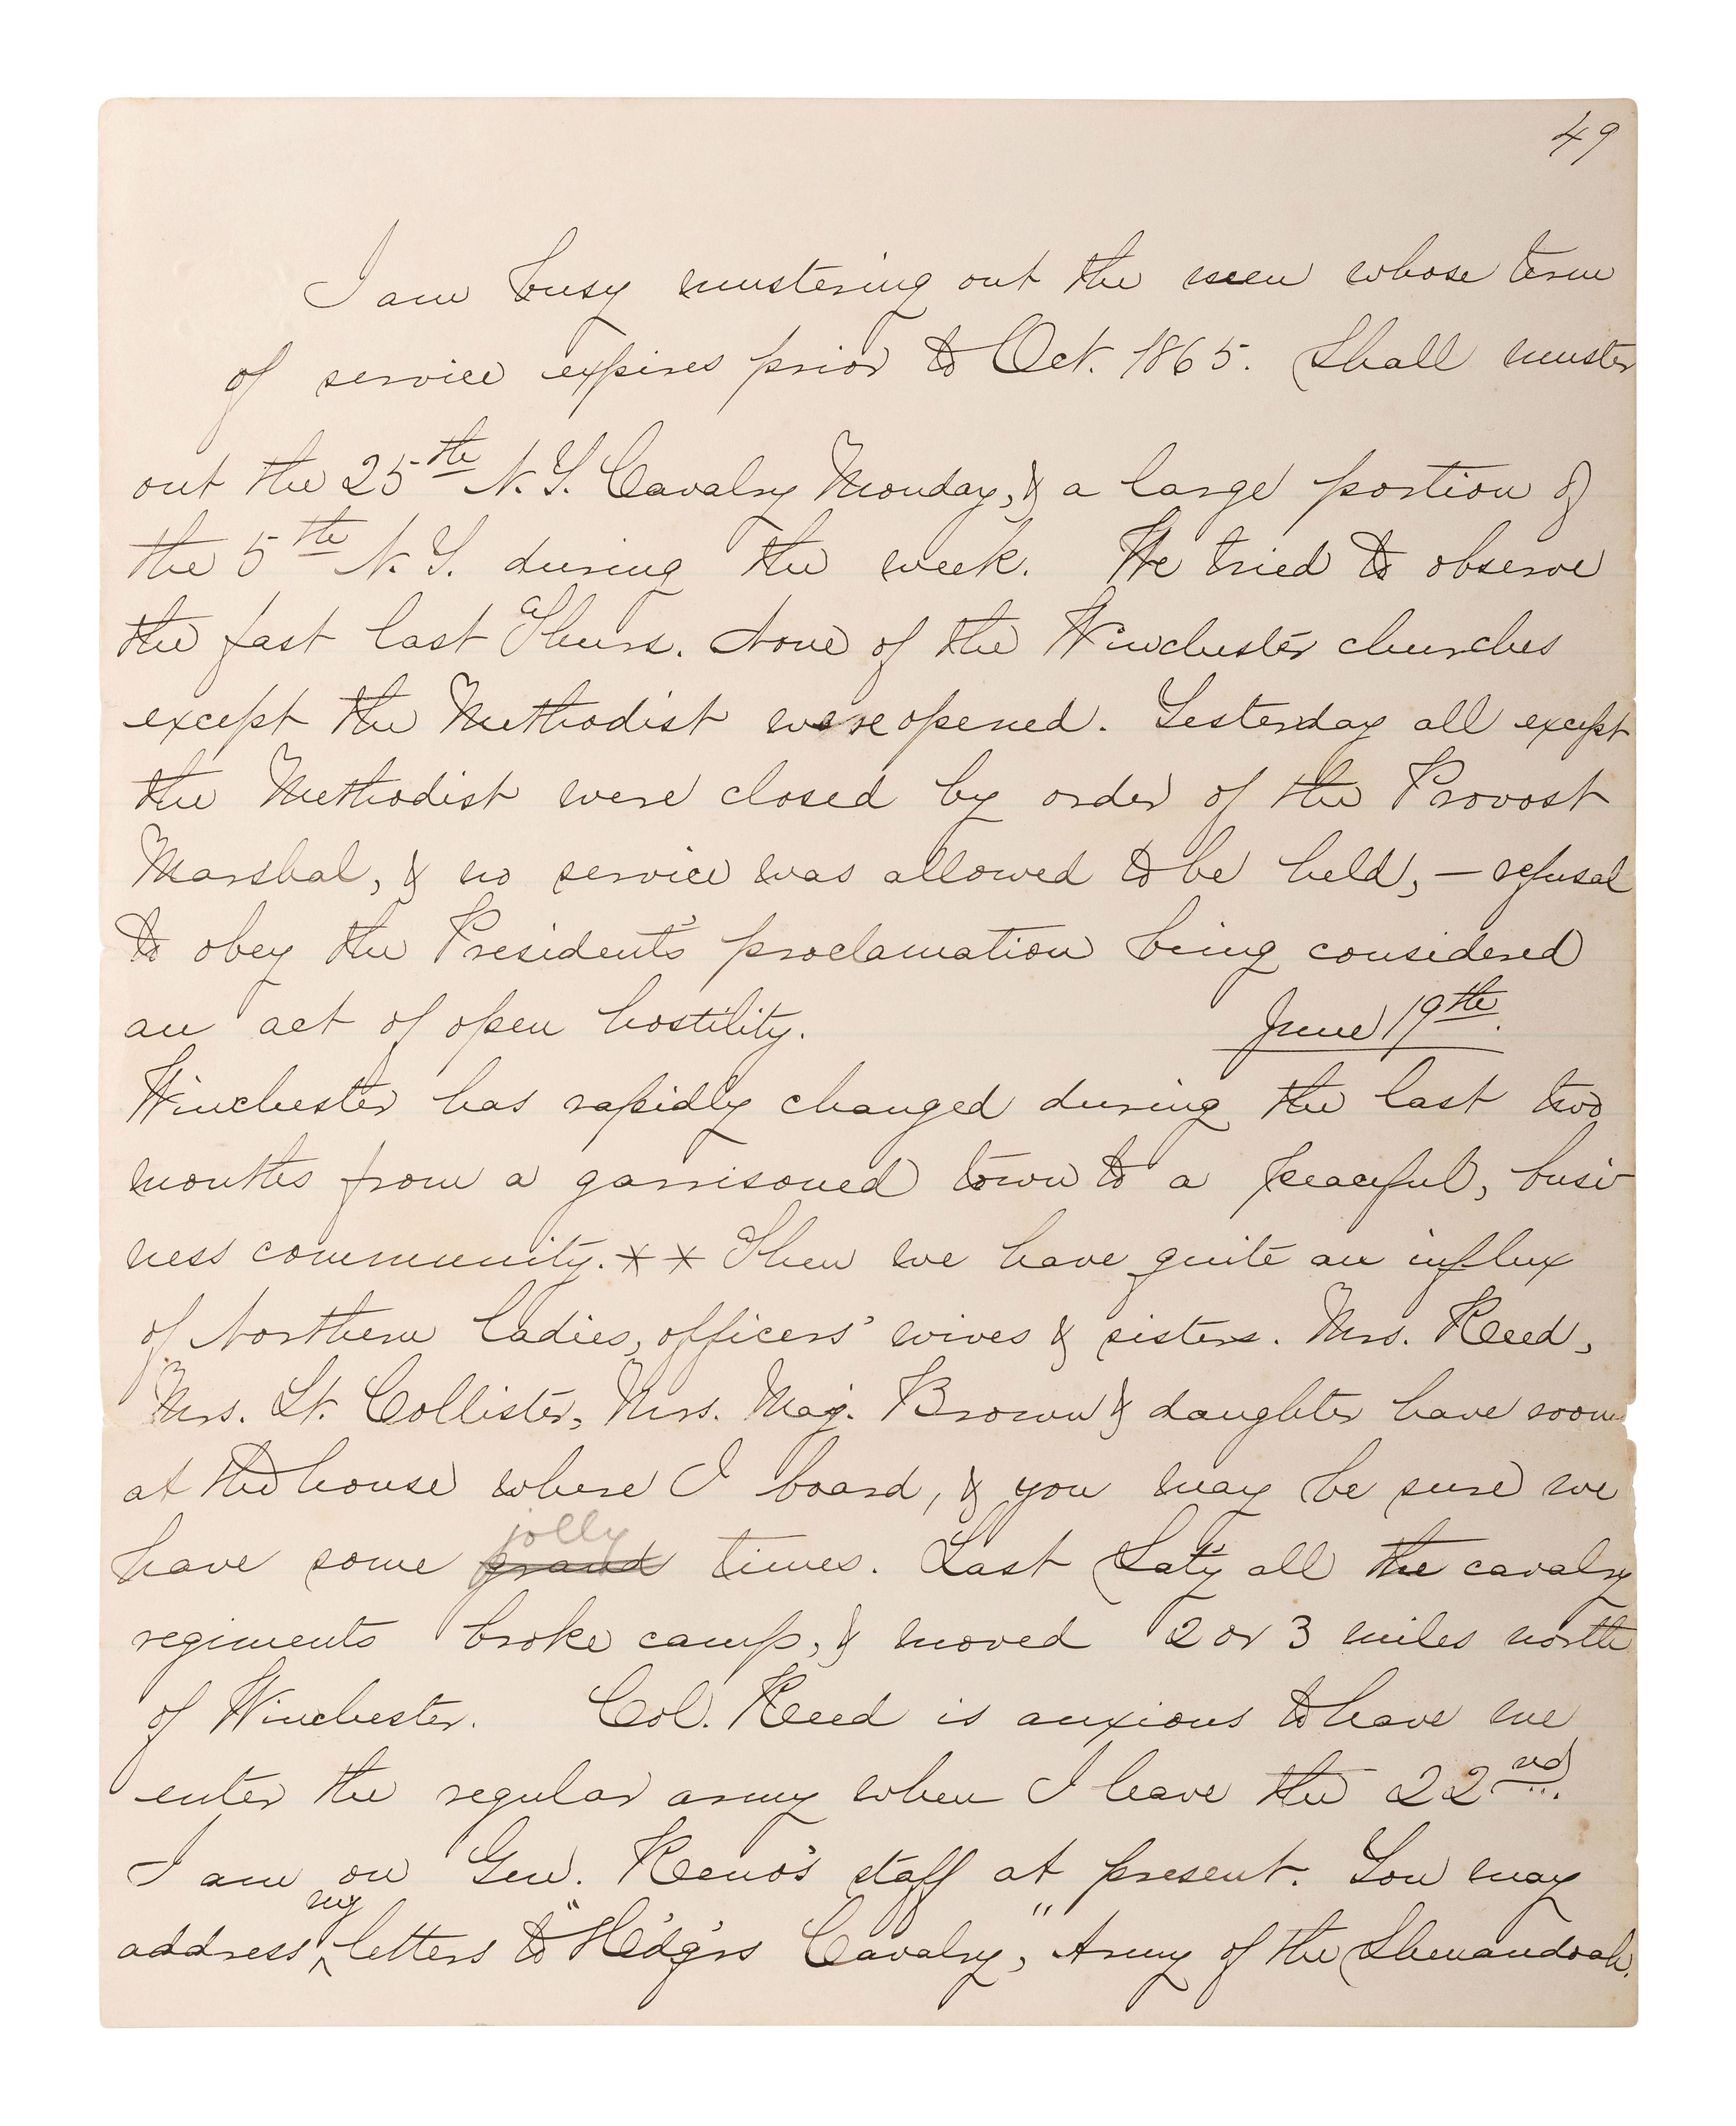 49
I am busy mustering out the men whose term
of service expires prior to Oct. 1865. Shall muster
out the 25th N.Y. Cavalry Monday, & a large portion of
the 5th N.Y. during the week. We tried to observe
the fast last Thurs. None of the Winchester churches
except the Methodist were opened. Yesterday all except
the Methodist were closed by order of the Provost
Marshal, & no service was allowed to be held, — refusal
to obey the President's proclamation being considered
an act of open hostility.
June 19th.
Winchester has rapidly changed during the last two
months from a garrisoned town to a peaceful, busi-
ness community. ** Then we have quite an influx
of Northern ladies, officers' wives & sisters. Mrs. Reed,
Mrs. Lt. Collister, Mrs. Maj. Brown & daughter have rooms
at the house where I board, & you may be sure we
jolly
have some grand times. Last Sat'y all the cavalry
regiments broke camp, & moved 2 or 3 miles north
of Winchester. Col. Reed is anxious to have me
enter the regular army when I leave the 22nd.
I am on Gen. Reno's staff at present. You may
my
address letters to "H'd'q'rs Cavalry," Army of the Shenandoah.